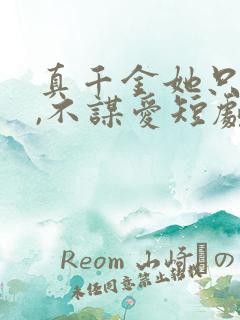 真千金她只
,不謀愛短劇
Reom 山崎の
未任同意禁止轉載